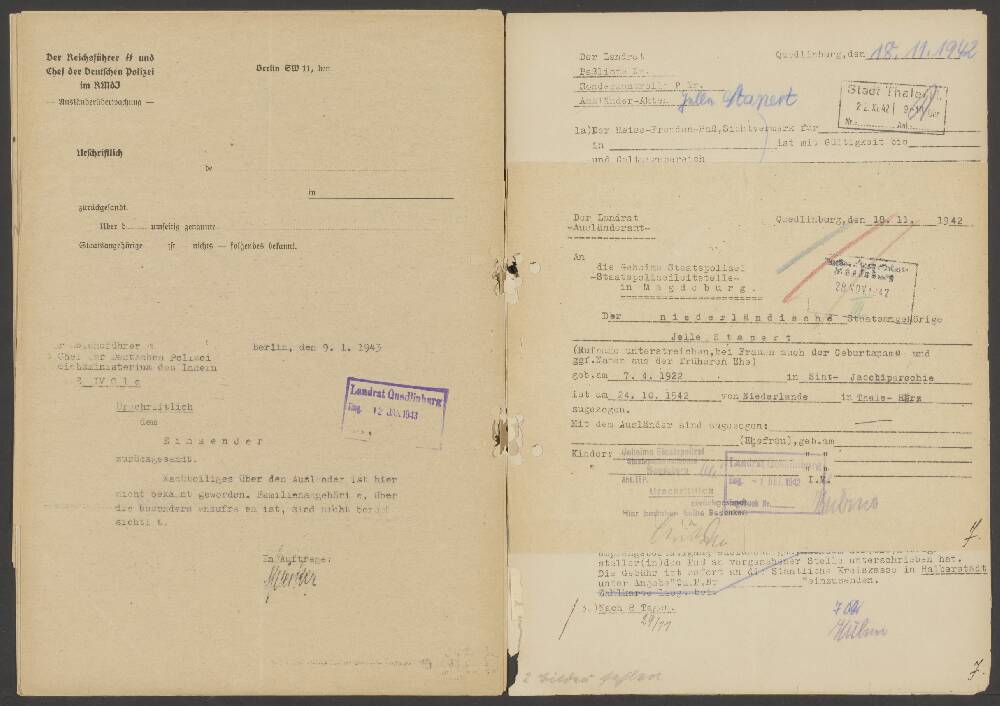 Der Reichsführer SS und
Chef der Deutschen Polizei
im RMdI
— Ausländerüberwachung —
Berlin SW 11, den
Urschriftlich
de
in
zurückgesandt.
Über d umseitig genannte
Staatsangehörige ist nichts — folgendes bekannt.
Chef der Deutschen Polizei
Berlin, den 9. 1. 1943
Reichsministerium des Innern
Urschriftlich
dem
Einsender
zurückgesandt.
Nachteiliges über den Ausländer ist hier
nicht bekannt geworden. Familienangehörige, über
die besonders anzufragen ist, sind nicht berück-
sichtigt.
Im Auftrage:
Landrat Quedlinburg
Eing. 12 JAN. 1943
Der Landrat
Quedlinburg, den 18. 11. 1942
Paßliste Nr.
Ausländer-Akten Jelle Stapert
Stadt Thale
22. XI. 42
1a)Der Reise-Fremden-Paß,Sichtvermerk für
in ist mit Gültigkeit bis
und Geltungsbereich
Der Landrat
-Ausländeramt-
Quedlinburg,den 18. 11. 1942
An
die Geheime Staatspolizei
-Staatspolizeileitstelle-
in Magdeburg.
28. NOV. 1942
Der niederländische Staatsangehörige
Jelle Stapert
(Rufname unterstreichen,bei Frauen auch der Geburtsname und
ggf.Namen aus der früheren Ehe)
geb.am 7. 4. 1922 in Sint- Jacobiparochie
ist am 24. 10. 1942 von Niederlande in Thale- Harz
zugezogen.
Mit dem Ausländer sind zugezogen:
(Ehefrau),geb.am
Kinder:
Geheime Staatspolizei
Magdeburg
Urschriftlich
zurückgesandt
Hier bestehen keine Bedenken
Landrat Quedlinburg
Eing. -1 DEZ. 1942
I.V.
7.
steller(in)den Paß an vorgesehener Stelle unterschrieben hat.
Die Gebühr ist sofort an die Staatliche Kreiskasse in Halberstadt
unter Angabe "Ch.P.Nr "einzusenden.
Zahlkarte lieg. bei.
)Nach 8 Tagen.
29/11
7.
2 Bilder fehlen